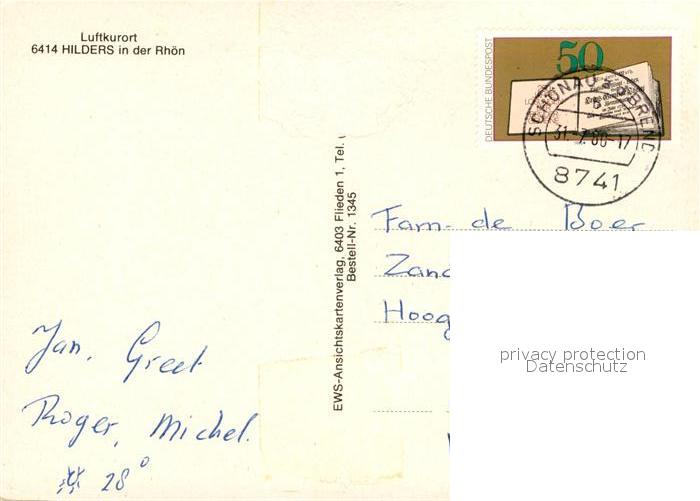 Luftkurort
6414 HILDERS in der Rhön
DEUTSCHE BUNDESPOST
50
SCHÖNAU a d BREND
31.-7.80-17
8741
EWS-Ansichtskartenverlag, 6403 Flieden 1, Tel. (
Bestell-Nr. 1345
Fam. de Boer
Zand
Hoog
privacy protection
Datenschutz
Jan, Greet
Roger, Michel.
28°